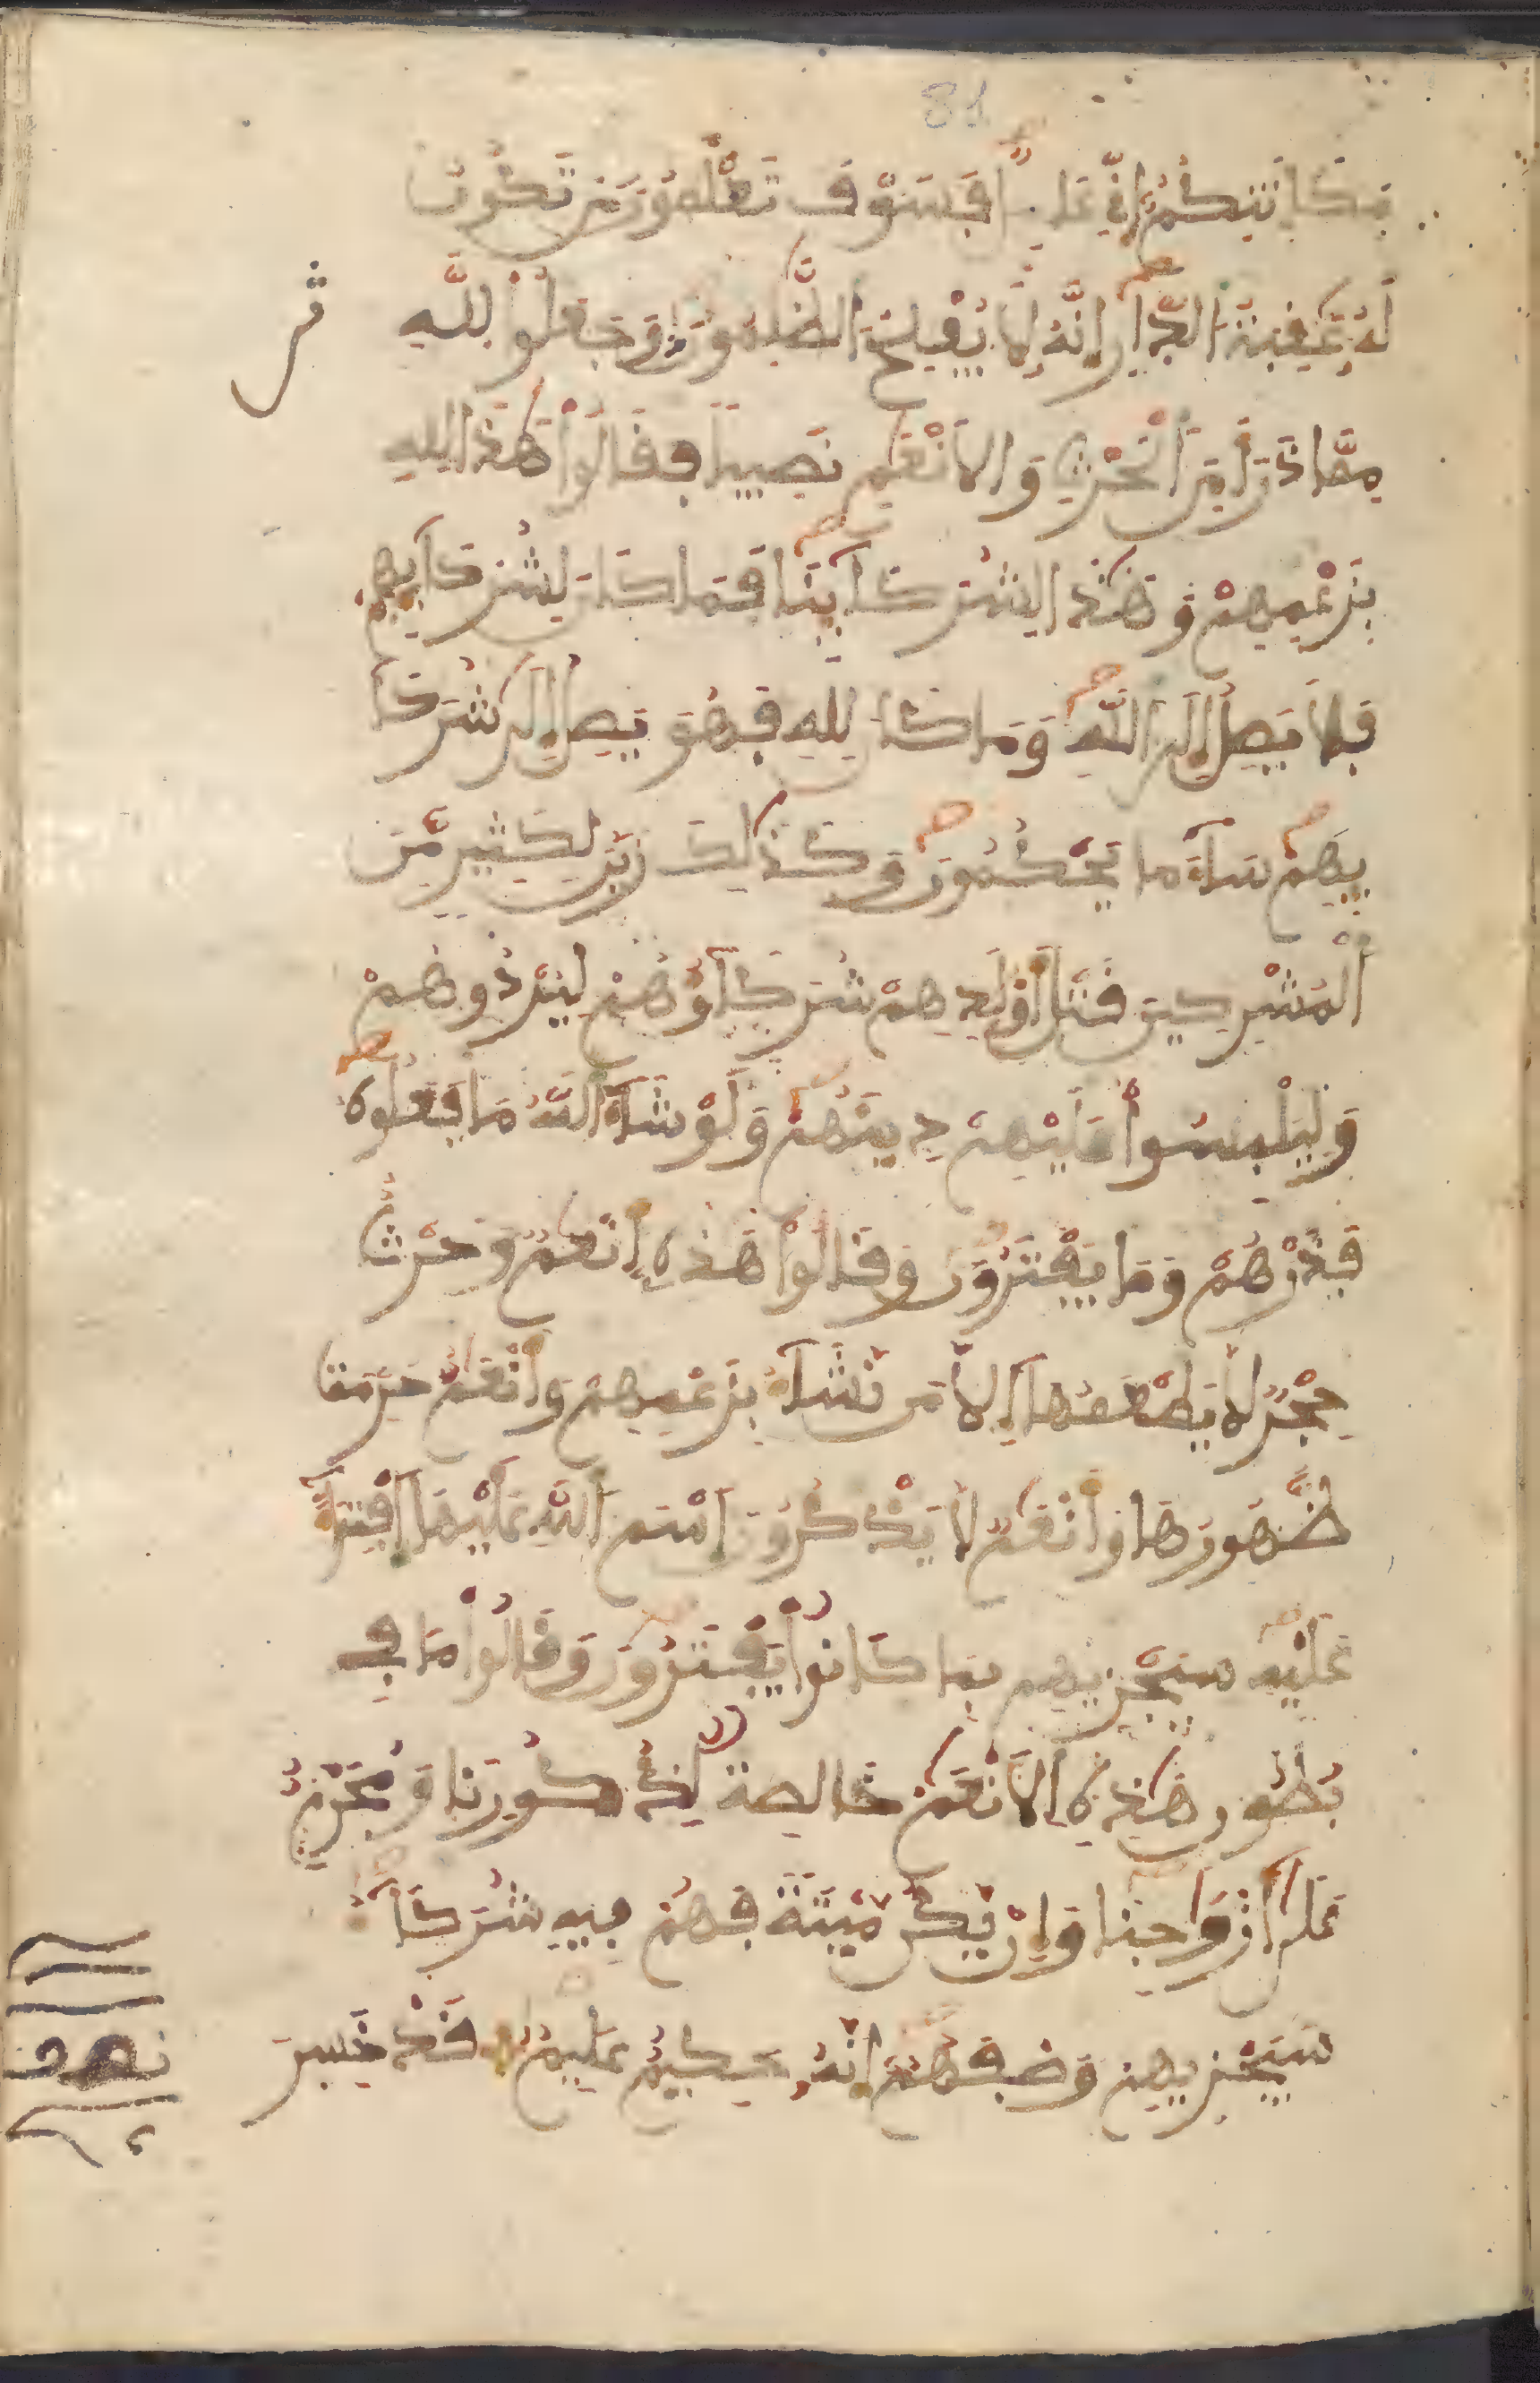 81
مَكَانَتِكُمُ إِنِّي عَامِلٌ فَسَوْفَ تَعْلَمُونَ مَن تَكُونُ
لَهُ عَٰفِبَةُ الدِّارِ إِنَّهُ لَا يُفْلِحُ الظَّٰلِمُونَ وَجَعَلُواْ لِلهِ
مِمَّا ذَرَأَ مِنَ الْحَرْثِ وَالْأَنْعَٰمِ نَصِيباً فَقَالُواْ هَٰذَا لِلهِ
بِزَعْمِهِمْ وَهَٰذَا لِشُرَكَآئِنَا فَمَا كَانَ لِشُرَكَآئِهِمْ
فَلَا يَصِلُ إِلَى اللَّهِ وَمَا كَانَ لِلهِ فَهُوَ يَصِلُ إِلَىٰ شُرَكَآ
ئِهِمْ سَآءَ مَا يَحْكُمُونَ وَكَذَٰلِكَ زَيَّنَ لِكَثِيرٍ مِّنَ
الْمُشْرِكِينَ قَتْلَ أَوْلَٰدِهِمْ شُرَكَآؤُهُمْ لِيُرْدُوهُمْ
وَلِيَلْبِسُواْ عَلَيْهِمْ دِينَهُمْ وَلَوْ شَآءَ اللَّهُ مَا فَعَلُوهُ
فَذَرْهُمْ وَمَا يَفْتَرُونَ وَقَالُواْ هَٰذِهِ أَنْعَٰمٌ وَحَرْثٌ
حِجْرٌ لَّا يَطْعَمُهَا إِلَّا مَن نَّشَآءُ بِزَعْمِهِمْ وَأَنْعَٰمٌ حُرِّمَت
ظُهُورُهَا وَأَنْعَٰمٌ لَّا يَذْكُرُونَ اسْمَ اللَّهِ عَلَيْهَا افْتِرَآءً
عَلَيْهِ سَيَجْزِيهِم بِمَا كَانُواْ يَفْتَرُونَ وَقَالُواْ مَا فِي
بُطُونِ هَٰذِهِ الْأَنْعَٰمِ خَالِصَةٌ لِّذُكُورِنَا وَمُحَرَّمٌ
عَلَىٰ أَزْوَٰجِنَا وَإِن يَّكُن مَّيْتَةً فَهُمْ فِيهِ شُرَكَآءُ
سَيَجْزِيهِمْ وَصْفَهُمْ إِنَّهُ حَكِيمٌ عَلِيمٌ قَدْ خَسِرَ
نصف